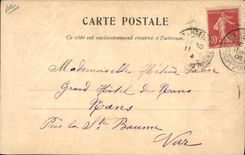 CARTE POSTALE
Ce côté est exclusivement réservé à l'adresse.
Mademoiselle Hélène Fabre
Grand Hôtel de Nans
Nans
Près la Ste Baume
Var